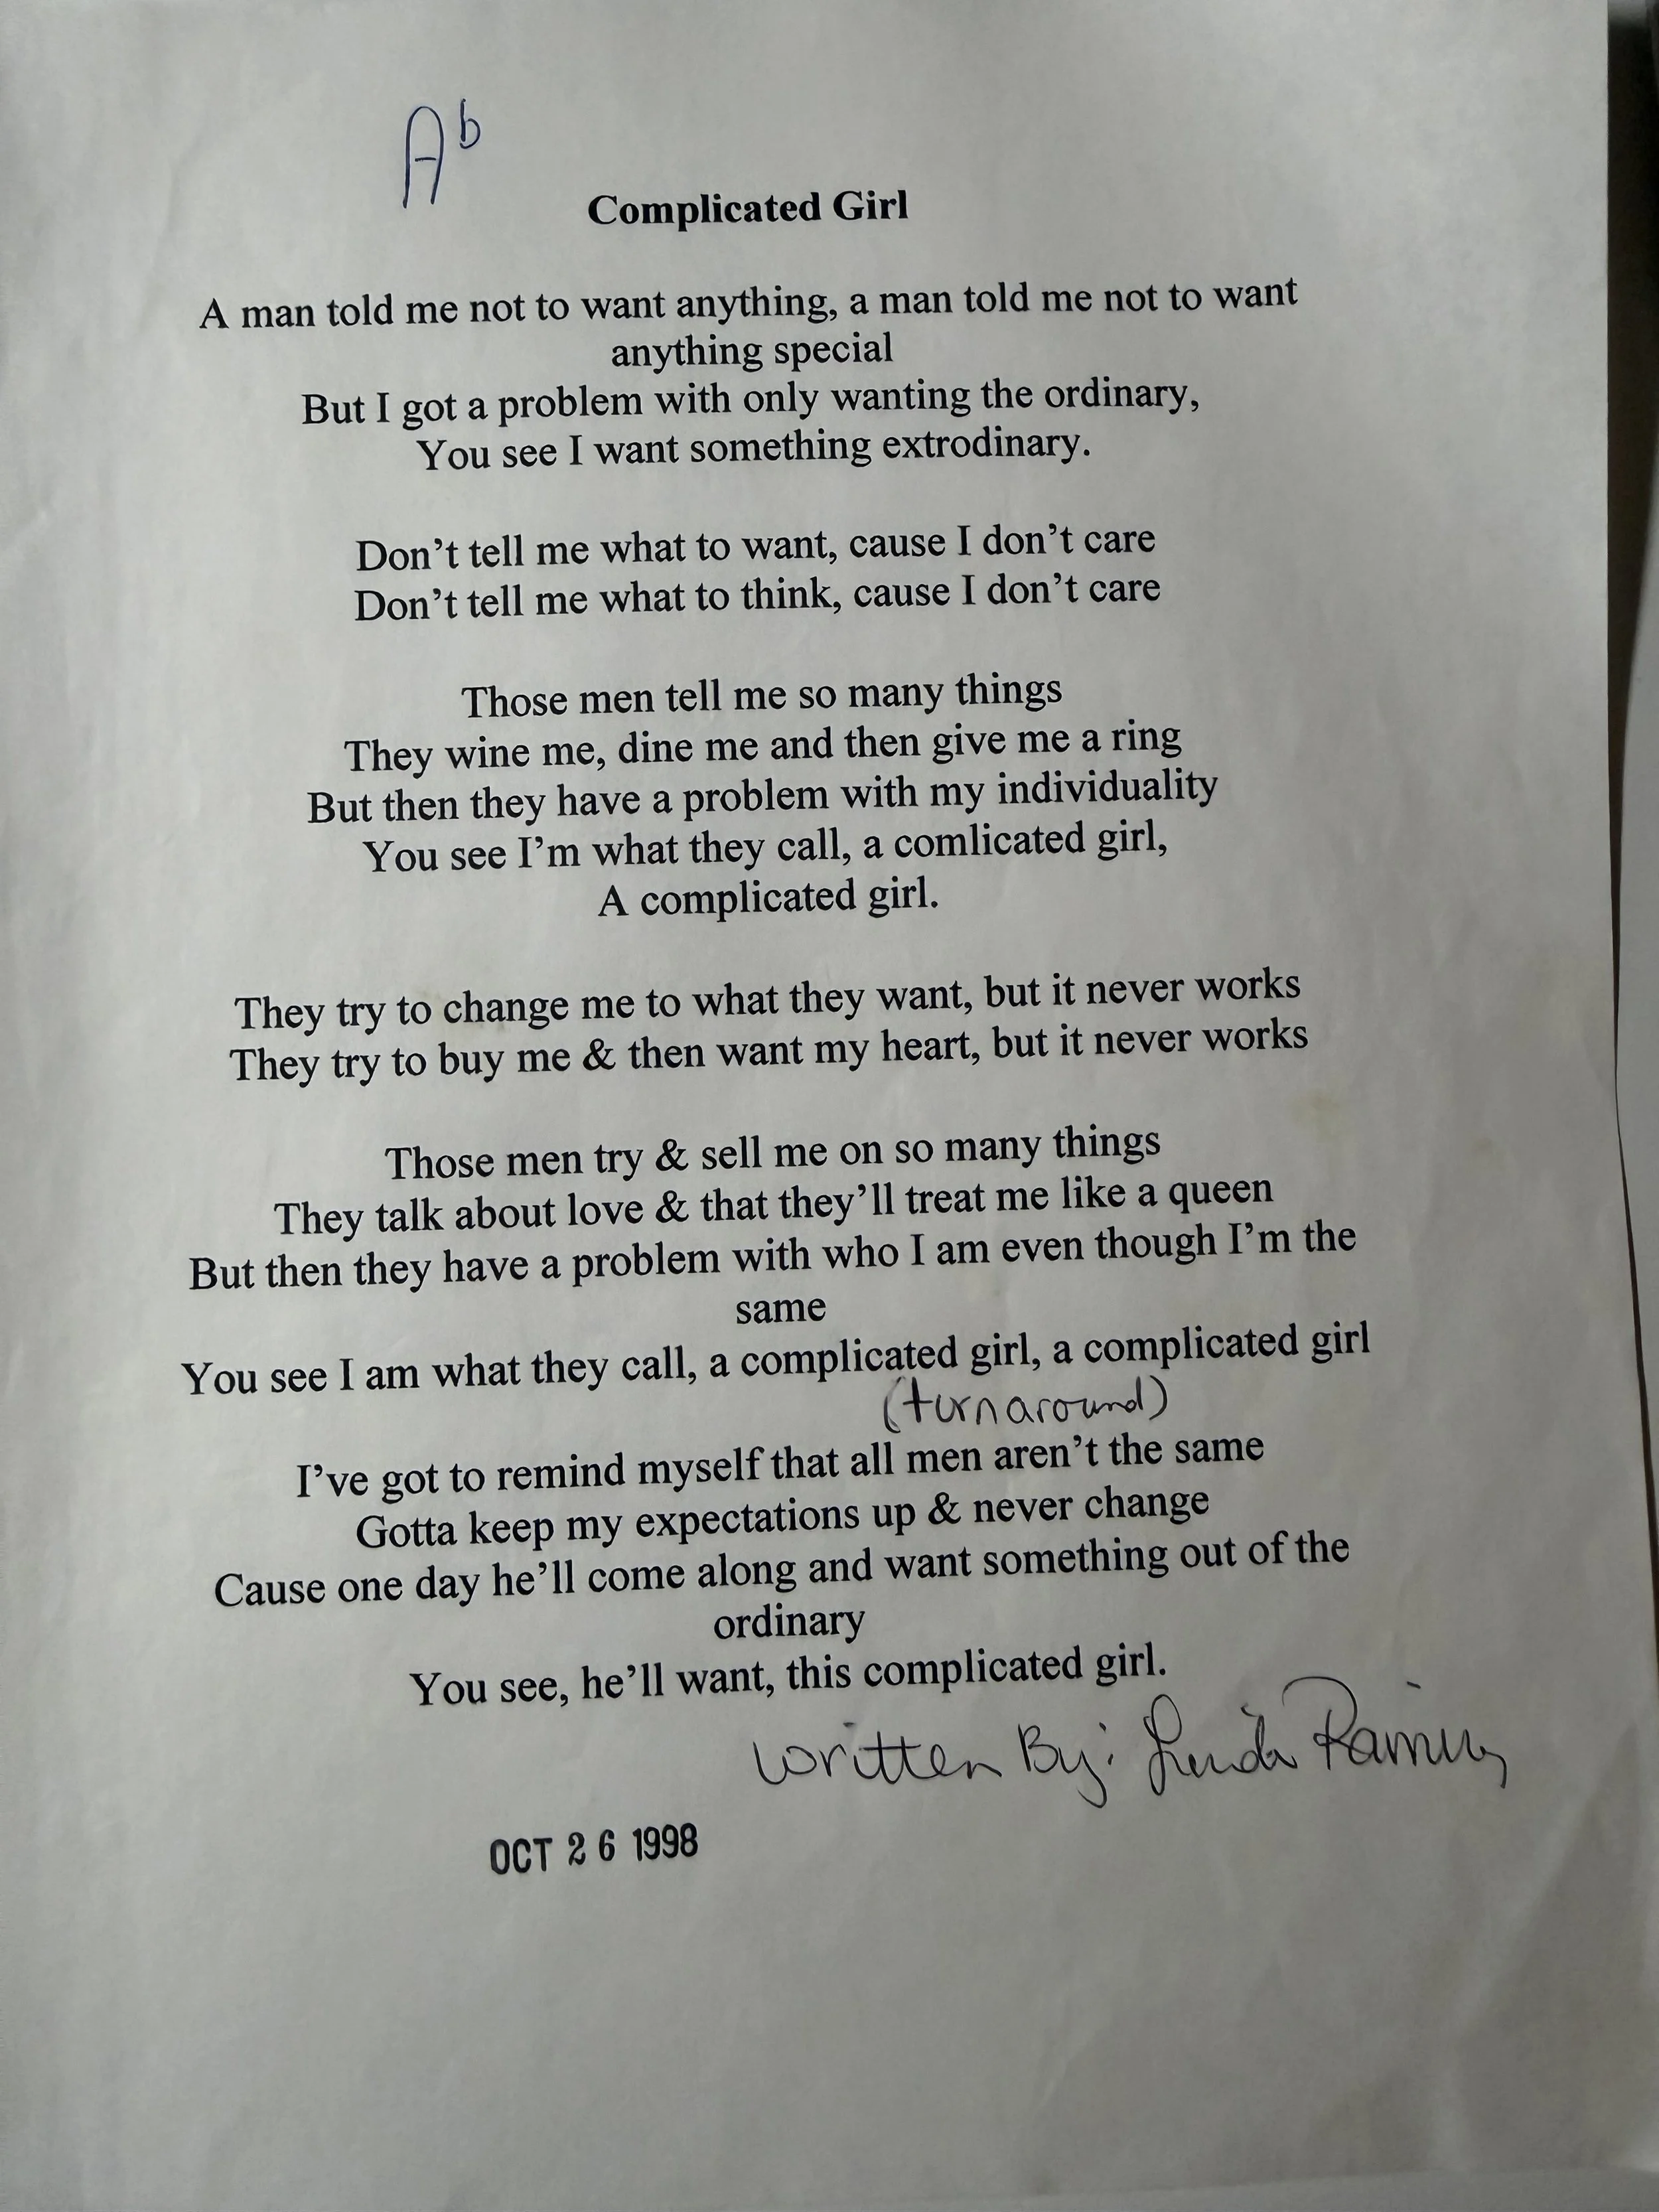 Ab
Complicated Girl
A man told me not to want anything, a man told me not to want
anything special
But I got a problem with only wanting the ordinary,
You see I want something extrodinary.
Don't tell me what to want, cause I don't care
Don't tell me what to think, cause I don't care
Those men tell me so many things
They wine me, dine me and then give me a ring
But then they have a problem with my individuality
You see I'm what they call, a comlicated girl,
A complicated girl.
They try to change me to what they want, but it never works
They try to buy me & then want my heart, but it never works
Those men try & sell me on so many things
They talk about love & that they'll treat me like a queen
But then they have a problem with who I am even though I'm the
same
You see I am what they call, a complicated girl, a complicated girl
(turnaround)
I've got to remind myself that all men aren't the same
Gotta keep my expectations up & never change
Cause one day he'll come along and want something out of the
ordinary
You see, he'll want, this complicated girl.
written By:
OCT 26 1998